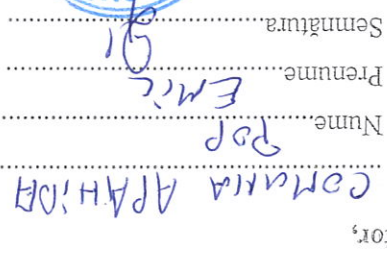 tor,
COMUNA APAHIDA
Nume POP
Prenume EMIL
Semnătura